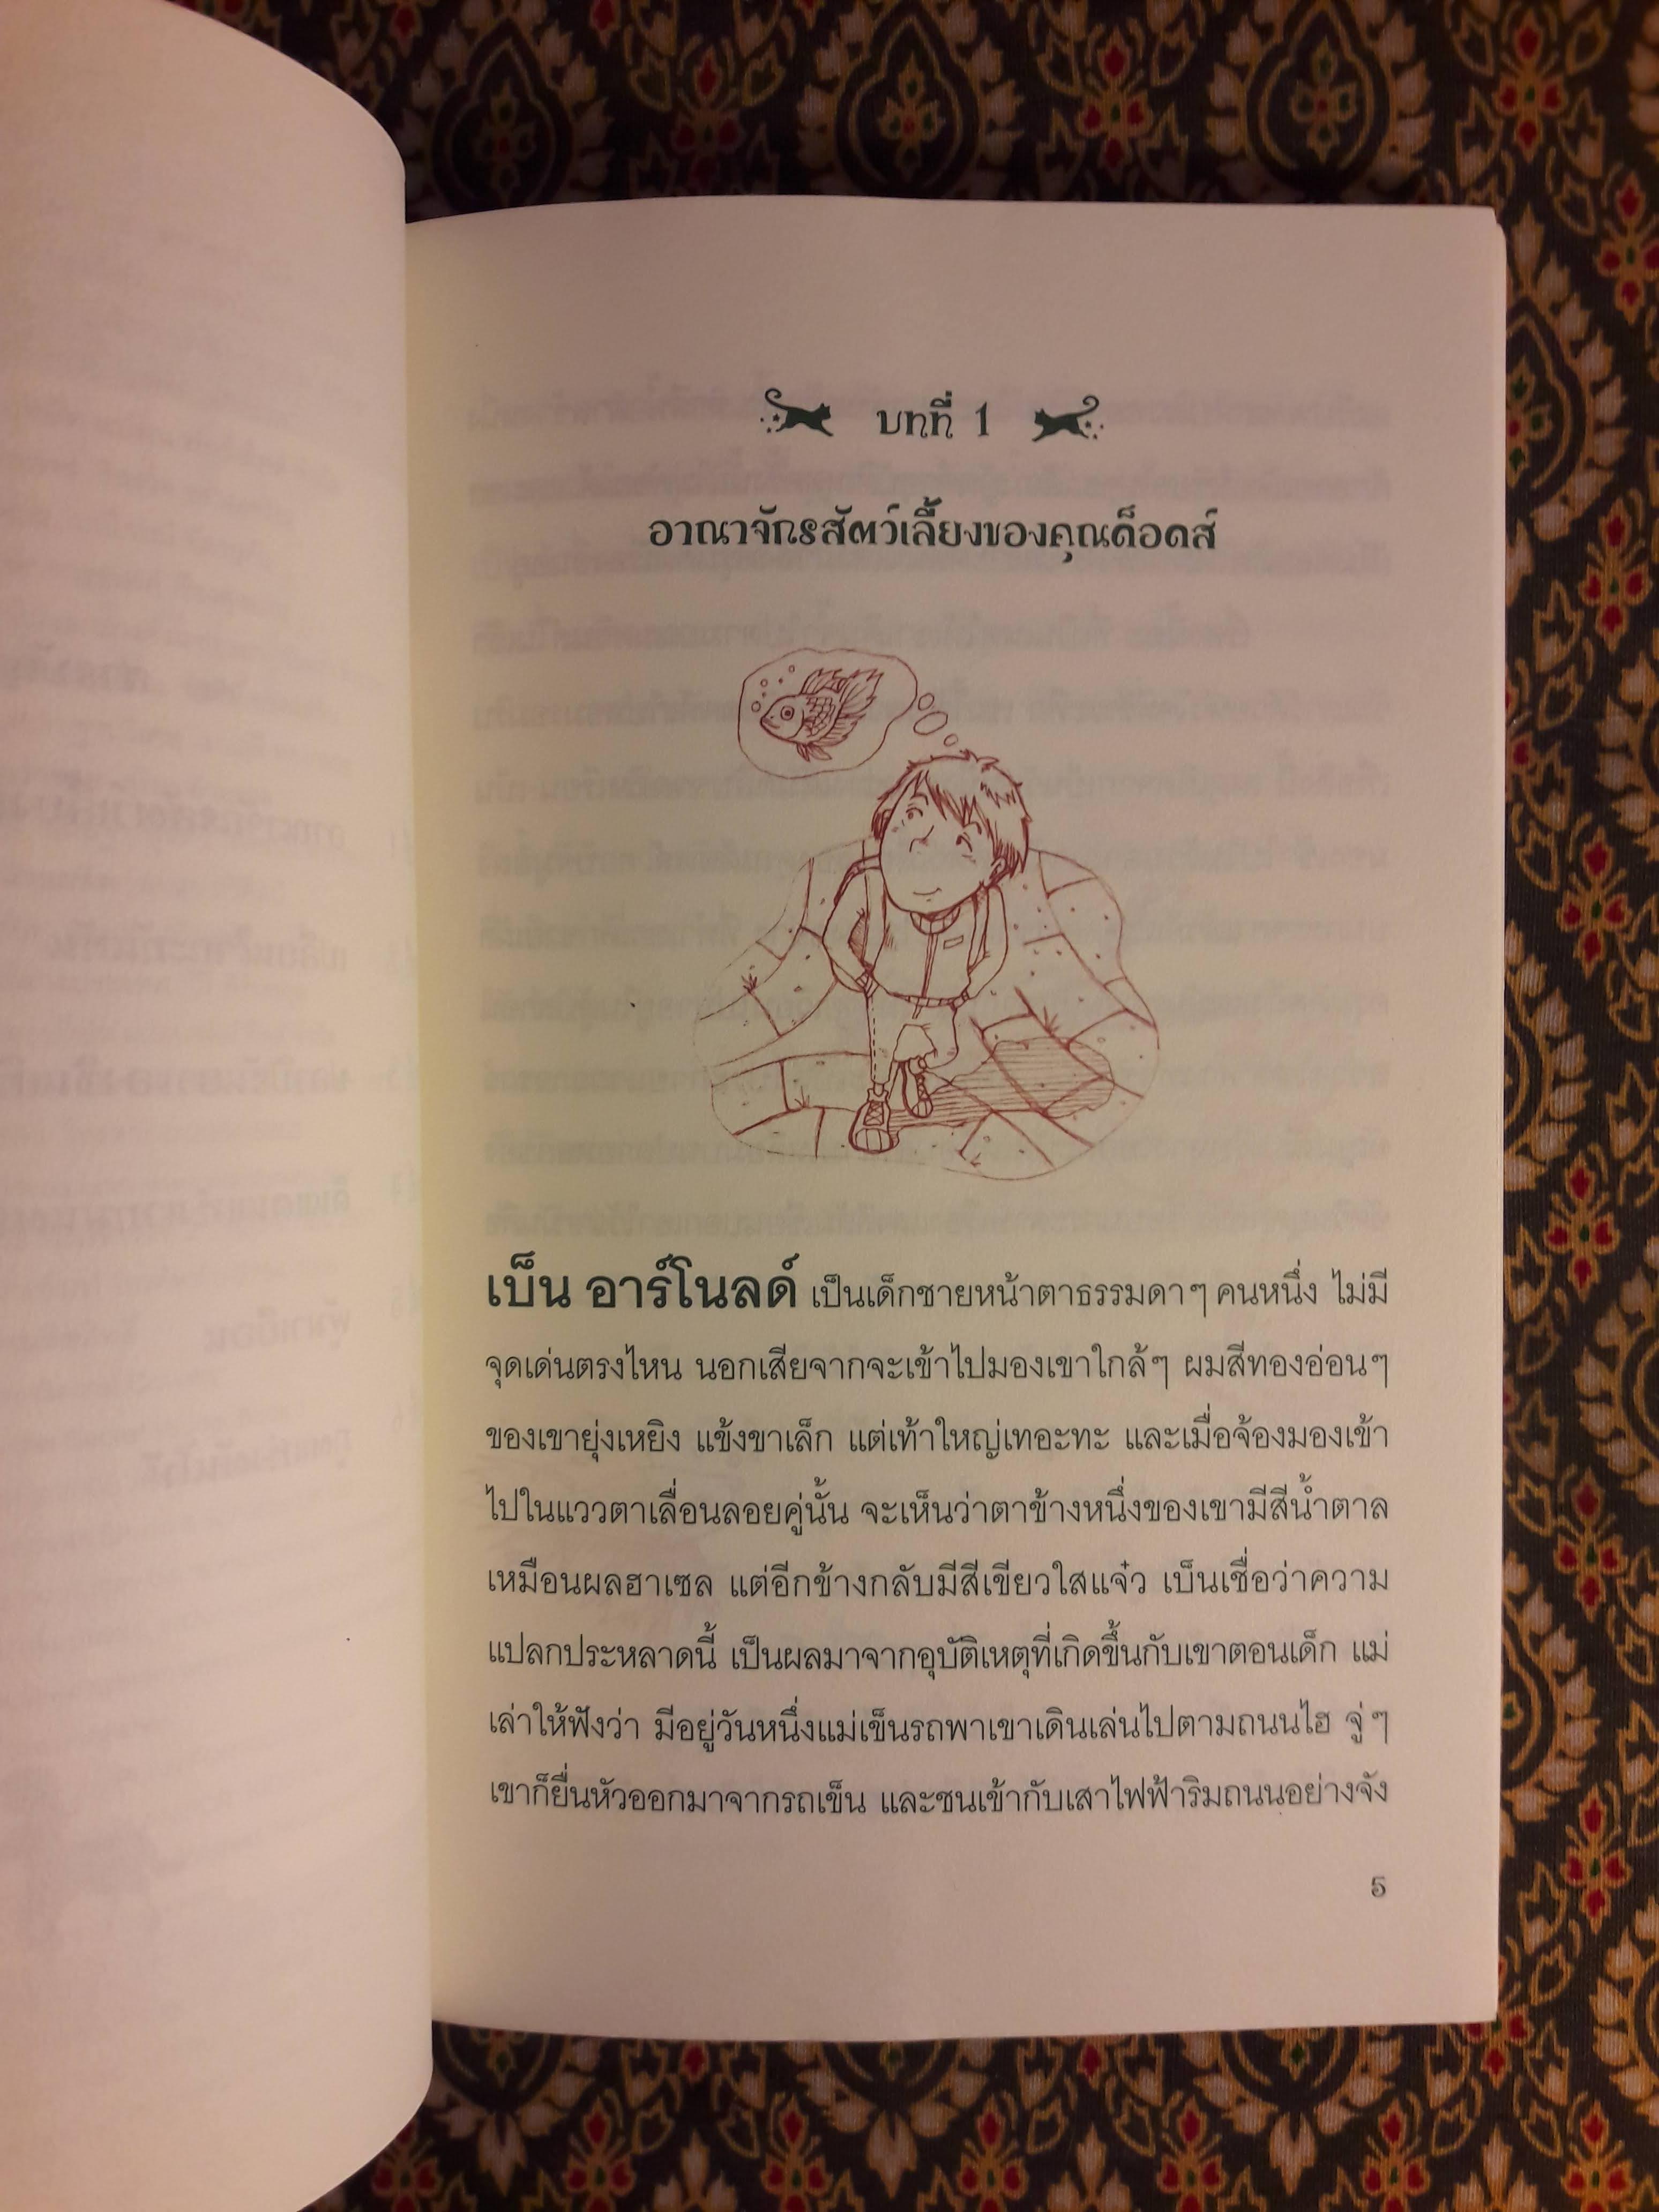 บทที่ 1
อาณาจักรสัตว์เลี้ยงของคุณด็อดส์
เบ็น อาร์โนลด์ เป็นเด็กชายหน้าตาธรรมดาๆ คนหนึ่ง ไม่มี
จุดเด่นตรงไหน นอกเสียจากจะเข้าไปมองเขาใกล้ๆ ผมสีทองอ่อนๆ
ของเขายุ่งเหยิง แข้งขาเล็ก แต่เท้าใหญ่เทอะทะ และเมื่อจ้องมองเข้า
ไปในแววตาเลื่อนลอยคู่นั้น จะเห็นว่าตาข้างหนึ่งของเขามีสีน้ำตาล
เหมือนผลฮาเซล แต่อีกข้างกลับมีสีเขียวใสแจ๋ว เบ็นเชื่อว่าความ
แปลกประหลาดนี้ เป็นผลมาจากอุบัติเหตุที่เกิดขึ้นกับเขาตอนเด็ก แม่
เล่าให้ฟังว่า มีอยู่วันหนึ่งแม่เข็นรถพาเขาเดินเล่นไปตามถนนไฮ จู่ๆ
เขาก็ยื่นหัวออกมาจากรถเข็น และชนเข้ากับเสาไฟฟ้าริมถนนอย่างจัง
5